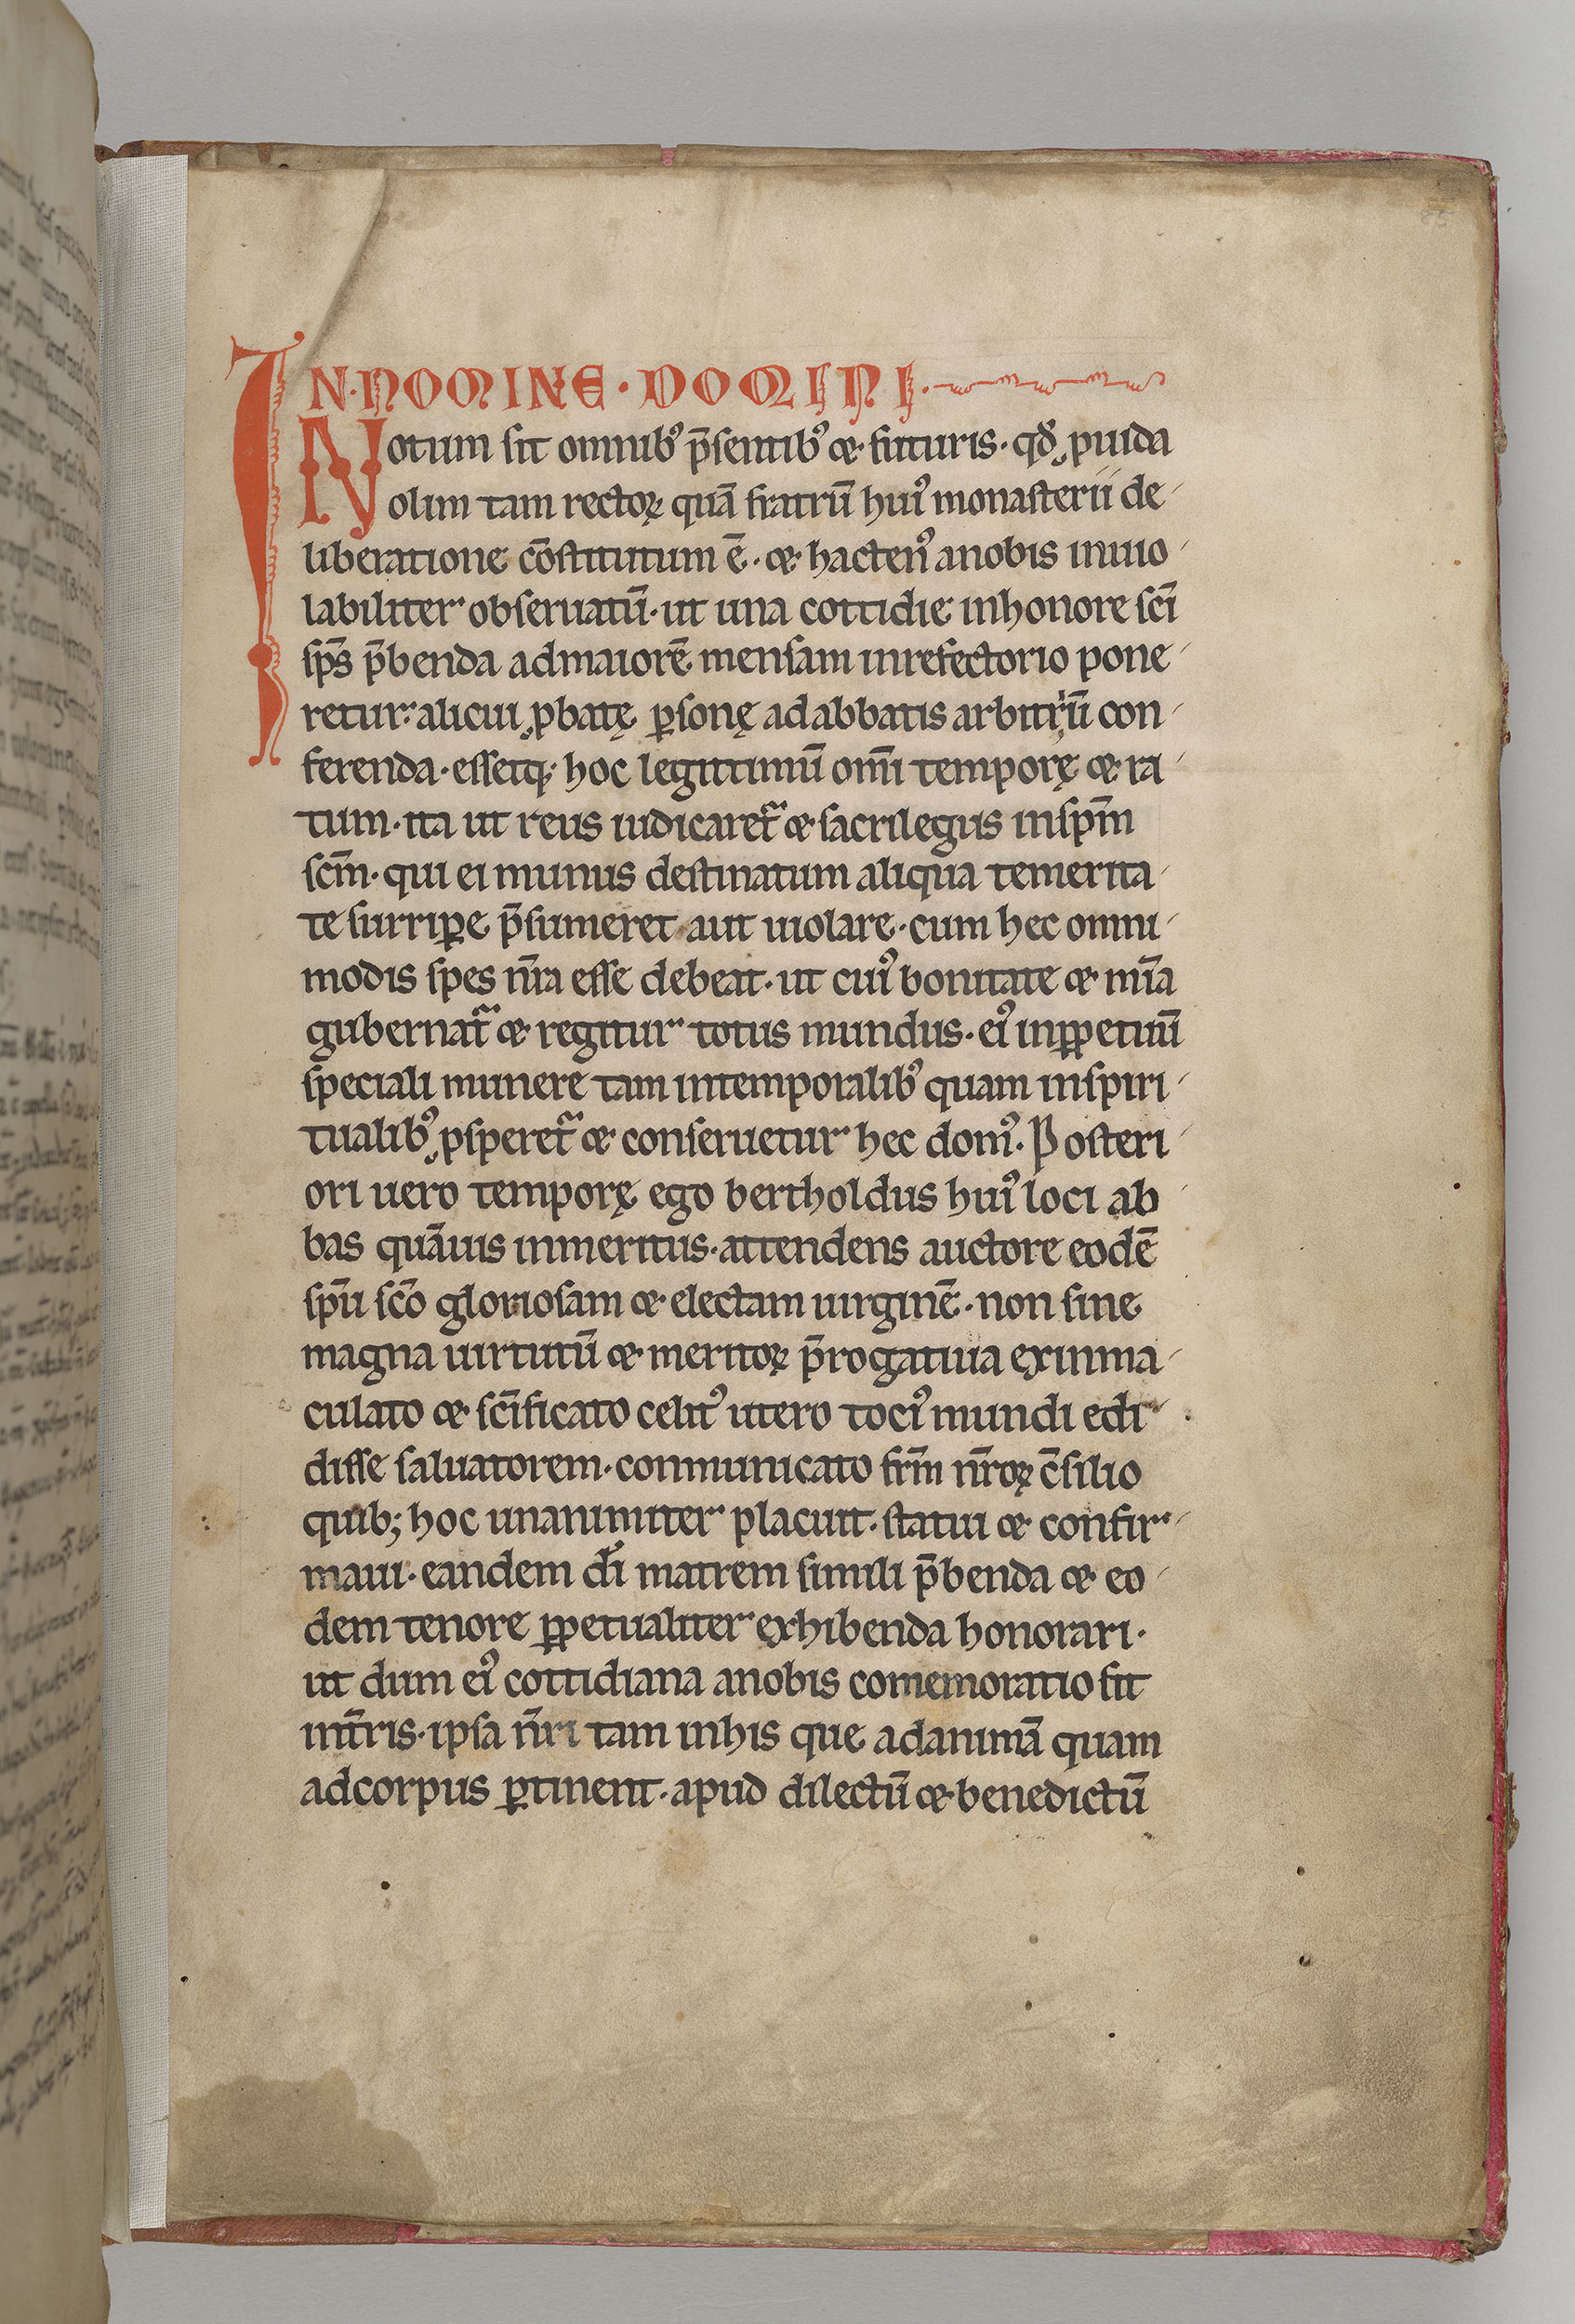 85
IN·NOMINE·DOMINI·
Notum sit omnib᾽ p̄sentib᾽ & futuris· qđ ꝓuida
olim tam rectoꝝ quā fratrū hui᾽ monasterii de
liberatione cōstitutum ē· & hacten᾽ anobis inuio
labiliter obseruatū· ut una cottidie inhonore sc̄i
sp̄s p̄benda admaiorē mensam inrefectorio pone
retur· alicui ꝓbatę ꝑsonę adabbatis arbitriū con
ferenda· essetq; hoc legitimū om̄i temporę & ra
tum· ita ut reus iudicaret̃ & sacrilegus insp̄m
sc̄m· qui ei munus destinatum aliqua temerita
te surriꝑe p̄sumeret aut uiolare· cum hec omni
modis spes n̄ra esse debeat· ut cui᾽ bonitate & mīa
gubernat̃ & regitur totus mundus· ei᾽ inꝑpetuū
speciali munere tam intemporalib᾽ quam inspiri
tualib᾽ ꝓsperet̃ & conseruetur hec dom᾽· Posteri
ori uero temporę ego bertholdus hui᾽ loci ab
bas quāuis inmeritus· attendens auctore eodē
sp̄u sc̄o gloriosam & electam uirginē· non sine
magna uirtutū & meritoꝝ p̄rogatiua exinma
culato & sc̄ificato celit᾽ utero toci᾽ mundi edi
disse saluatorem· conmunicato fr̄m n̄roꝝ c̄silio
quib; hoc unanimiter placuit· statui & confir
maui· eandem dī matrem simili p̄benda & eo
dem tenore ꝑpetualiter exhibenda honorari·
ut dum ei᾽ cottidiana anobis comemoratio fit
int̄ris· ipsa n̄ri tam inhis que adanimā quam
adcorpus ꝑtinent· apud dilectū & benedictū